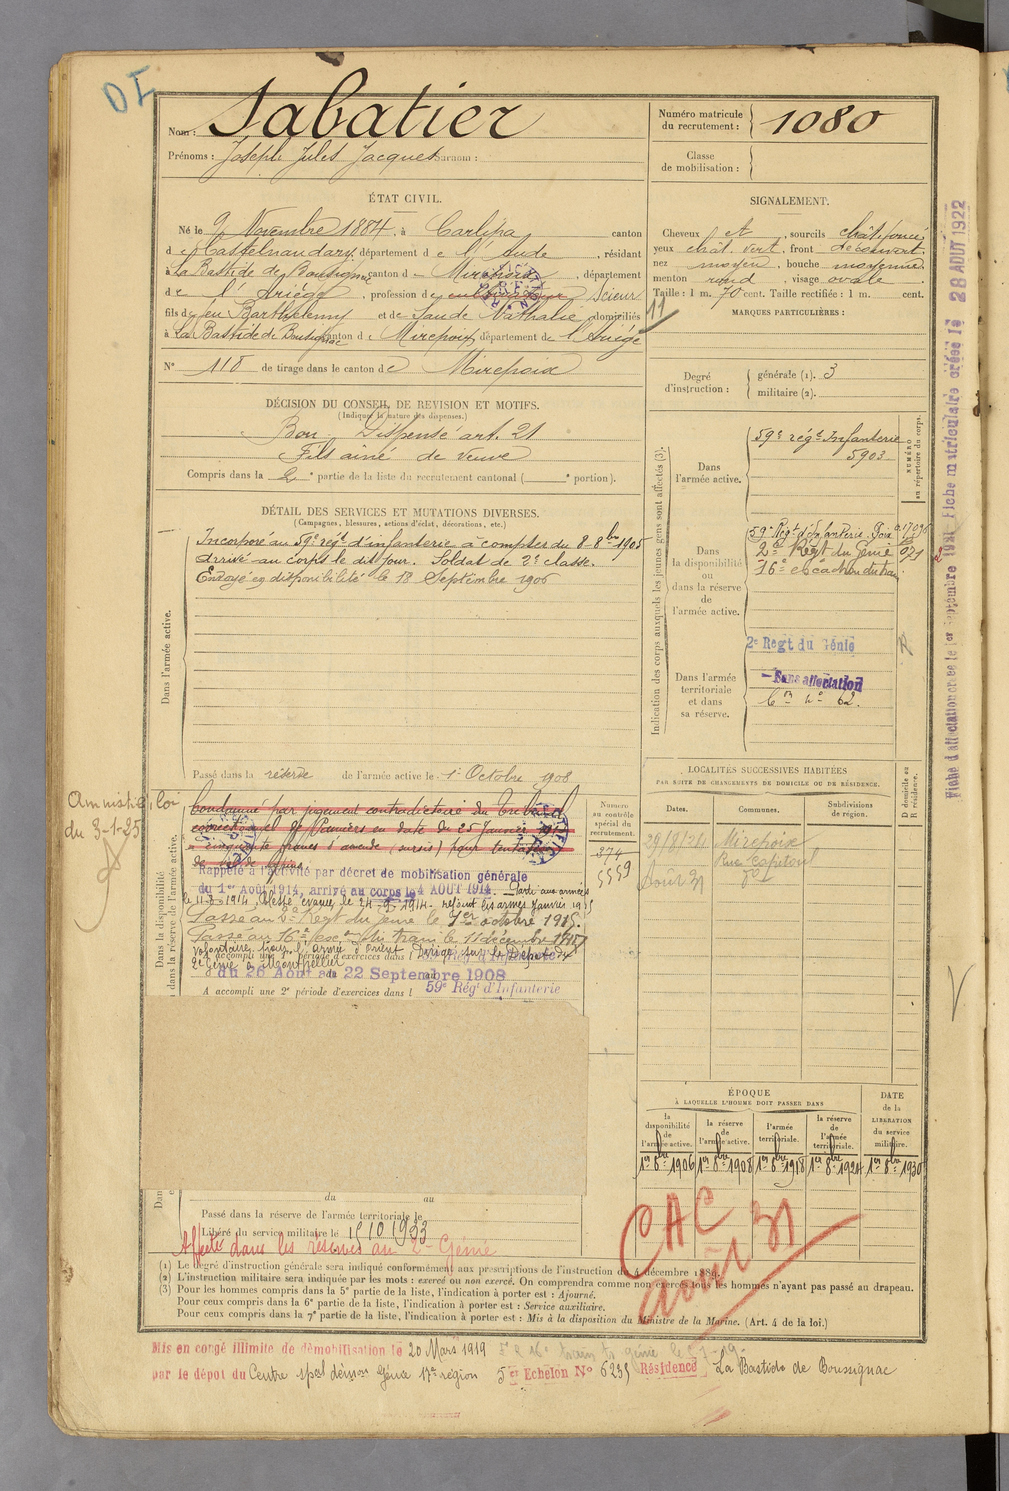 Nom : Sabatier
Prénoms : Joseph Jules Jacques Surnom :
Numéro matricule du recrutement : 1080
Classe de mobilisation :
ÉTAT CIVIL.
Né le 9 Novembre 1884, à Carlipa canton
de Castelnaudary, département de l'Aude, résidant
à La Bastide de Bousignac canton de Mirepoix, département
de l'Ariège, profession de cultivateur Scieur
fils de feu Barthélemy et de Saude Nathalie, domiciliés
à La Bastide de Bousignac canton de Mirepoix département de l'Ariège
N° 118 de tirage dans le canton de Mirepoix
SIGNALEMENT.
Cheveux et, sourcils chât. foncé
yeux chât. vert, front découvert
nez moyen, bouche moyenne
menton rond, visage ovale
Taille : 1 m. 70 cent. Taille rectifiée : 1 m. cent.
MARQUES PARTICULIÈRES :
11
Degré d'instruction : générale (1). 3
militaire (2).
DÉCISION DU CONSEIL DE REVISION ET MOTIFS.
(Indiquer la nature des dispenses.)
Bon Dispensé art. 21
Fils aîné de veuve
Compris dans la 2e partie de la liste du recrutement cantonal ( e portion).
DÉTAIL DES SERVICES ET MUTATIONS DIVERSES.
(Campagnes, blessures, actions d'éclat, décorations, etc.)
Dans l'armée active.
Incorporé au 59e régt d'infanterie à compter du 8 8bre 1905
Arrivé au corps le dit jour. Soldat de 2e classe.
Envoyé en disponibilité le 18 Septembre 1906
Passé dans la réserve de l'armée active le 1er Octobre 1908
Indication des corps auxquels les jeunes gens sont affectés (3).
NUMÉRO au répertoire du corps.
Dans l'armée active.
59e régt Infanterie
5903
Dans la disponibilité ou dans la réserve de l'armée active.
59e Régt d'Infanterie Foix
2e Régt du Génie
16e escadron du train
Dans l'armée territoriale et dans sa réserve.
2e Regt du Génie
Sans affectation
Fiche d'affectation créée le 1er Septembre 1921 Fiche matriculaire créée le 28 AOUT 1922
LOCALITÉS SUCCESSIVES HABITÉES
PAR SUITE DE CHANGEMENTS DE DOMICILE OU DE RÉSIDENCE.
Dates. Communes. Subdivisions de région. D domicile ou R résidence.
29/8/24 Mirepoix
Août 31
Amnistié, loi
du 3-1-25
Dans la disponibilité
dans la réserve de l'armée active.
Condamné par jugement contradictoire du Tribunal
correctionnel de Pamiers en date du 25 Janvier
à cinquante francs d'amende (sursis) pour tentative
Numéro au contrôle spécial du recrutement.
374
5559
Rappelé à l'activité par décret de mobilisation générale
du 1er Août 1914, arrivé au corps le 4 AOUT 1914. Parti aux armées
Passé au 2e Régt du génie le 1er octobre 1915.
volontaire pour l'armée d'Orient Dirigé sur le Dépôt du
2e Génie à Montpellier
A accompli une 1re période d'exercices dans l
du 26 Août au 22 Septembre 1908
A accompli une 2e période d'exercices dans l 59e Rég' d'Infanterie
ÉPOQUE
À LAQUELLE L'HOMME DOIT PASSER DANS
la disponibilité de l'armée active.
la réserve de l'armée active.
l'armée territoriale.
la réserve de l'armée territoriale.
DATE de la LIBÉRATION du service militaire.
1er 8bre 1906 1er 8bre 1908 1er 8bre 1918 1er 8bre 1924 1er 8bre 1930
CAC
août 31
du au
Passé dans la réserve de l'armée territoriale le
Libéré du service militaire le 15 10 1933
Affecté dans les réserves au 2e Génie
(1) Le degré d'instruction générale sera indiqué conformément aux prescriptions de l'instruction du 4 décembre 1889.
(2) L'instruction militaire sera indiquée par les mots : exercé ou non exercé. On comprendra comme non exercés tous les hommes n'ayant pas passé au drapeau.
(3) Pour les hommes compris dans la 5e partie de la liste, l'indication à porter est : Ajourné.
Pour ceux compris dans la 6e partie de la liste, l'indication à porter est : Service auxiliaire.
Pour ceux compris dans la 7e partie de la liste, l'indication à porter est : Mis à la disposition du Ministre de la Marine. (Art. 4 de la loi.)
Mis en congé illimité de démobilisation le 20 Mars 1919
par le dépôt du Centre spal démon Génie 17e région 5e Echelon N° 6235 Résidence La Bastide de Boussignac